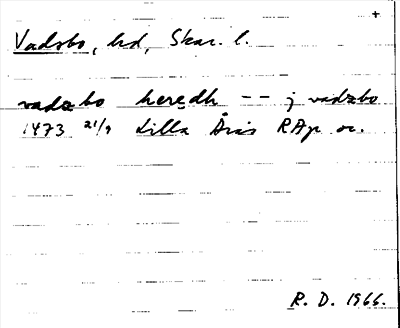 +
Vadsbo, hd, Skar. l.
vadzbo heredh -- j vadzbo
1473 21/9 Lilla Årås RAp or.
R. D. 1966.